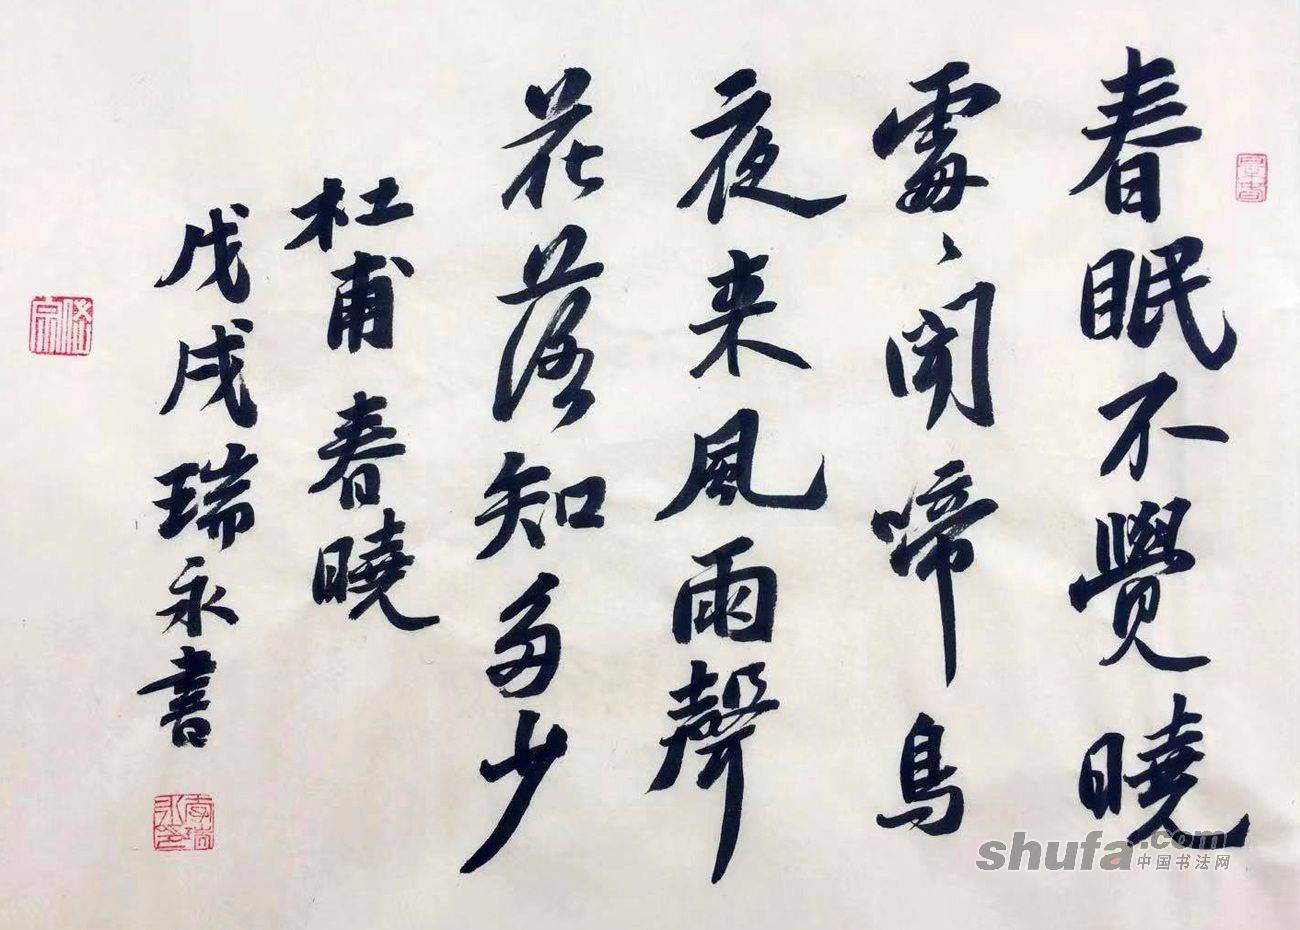 春眠不覺曉
處〻聞啼鳥
夜来風雨聲
花落知多少
杜甫春曉
戊戌瑞永書
李瑞永印
shufa.com
中国书法网